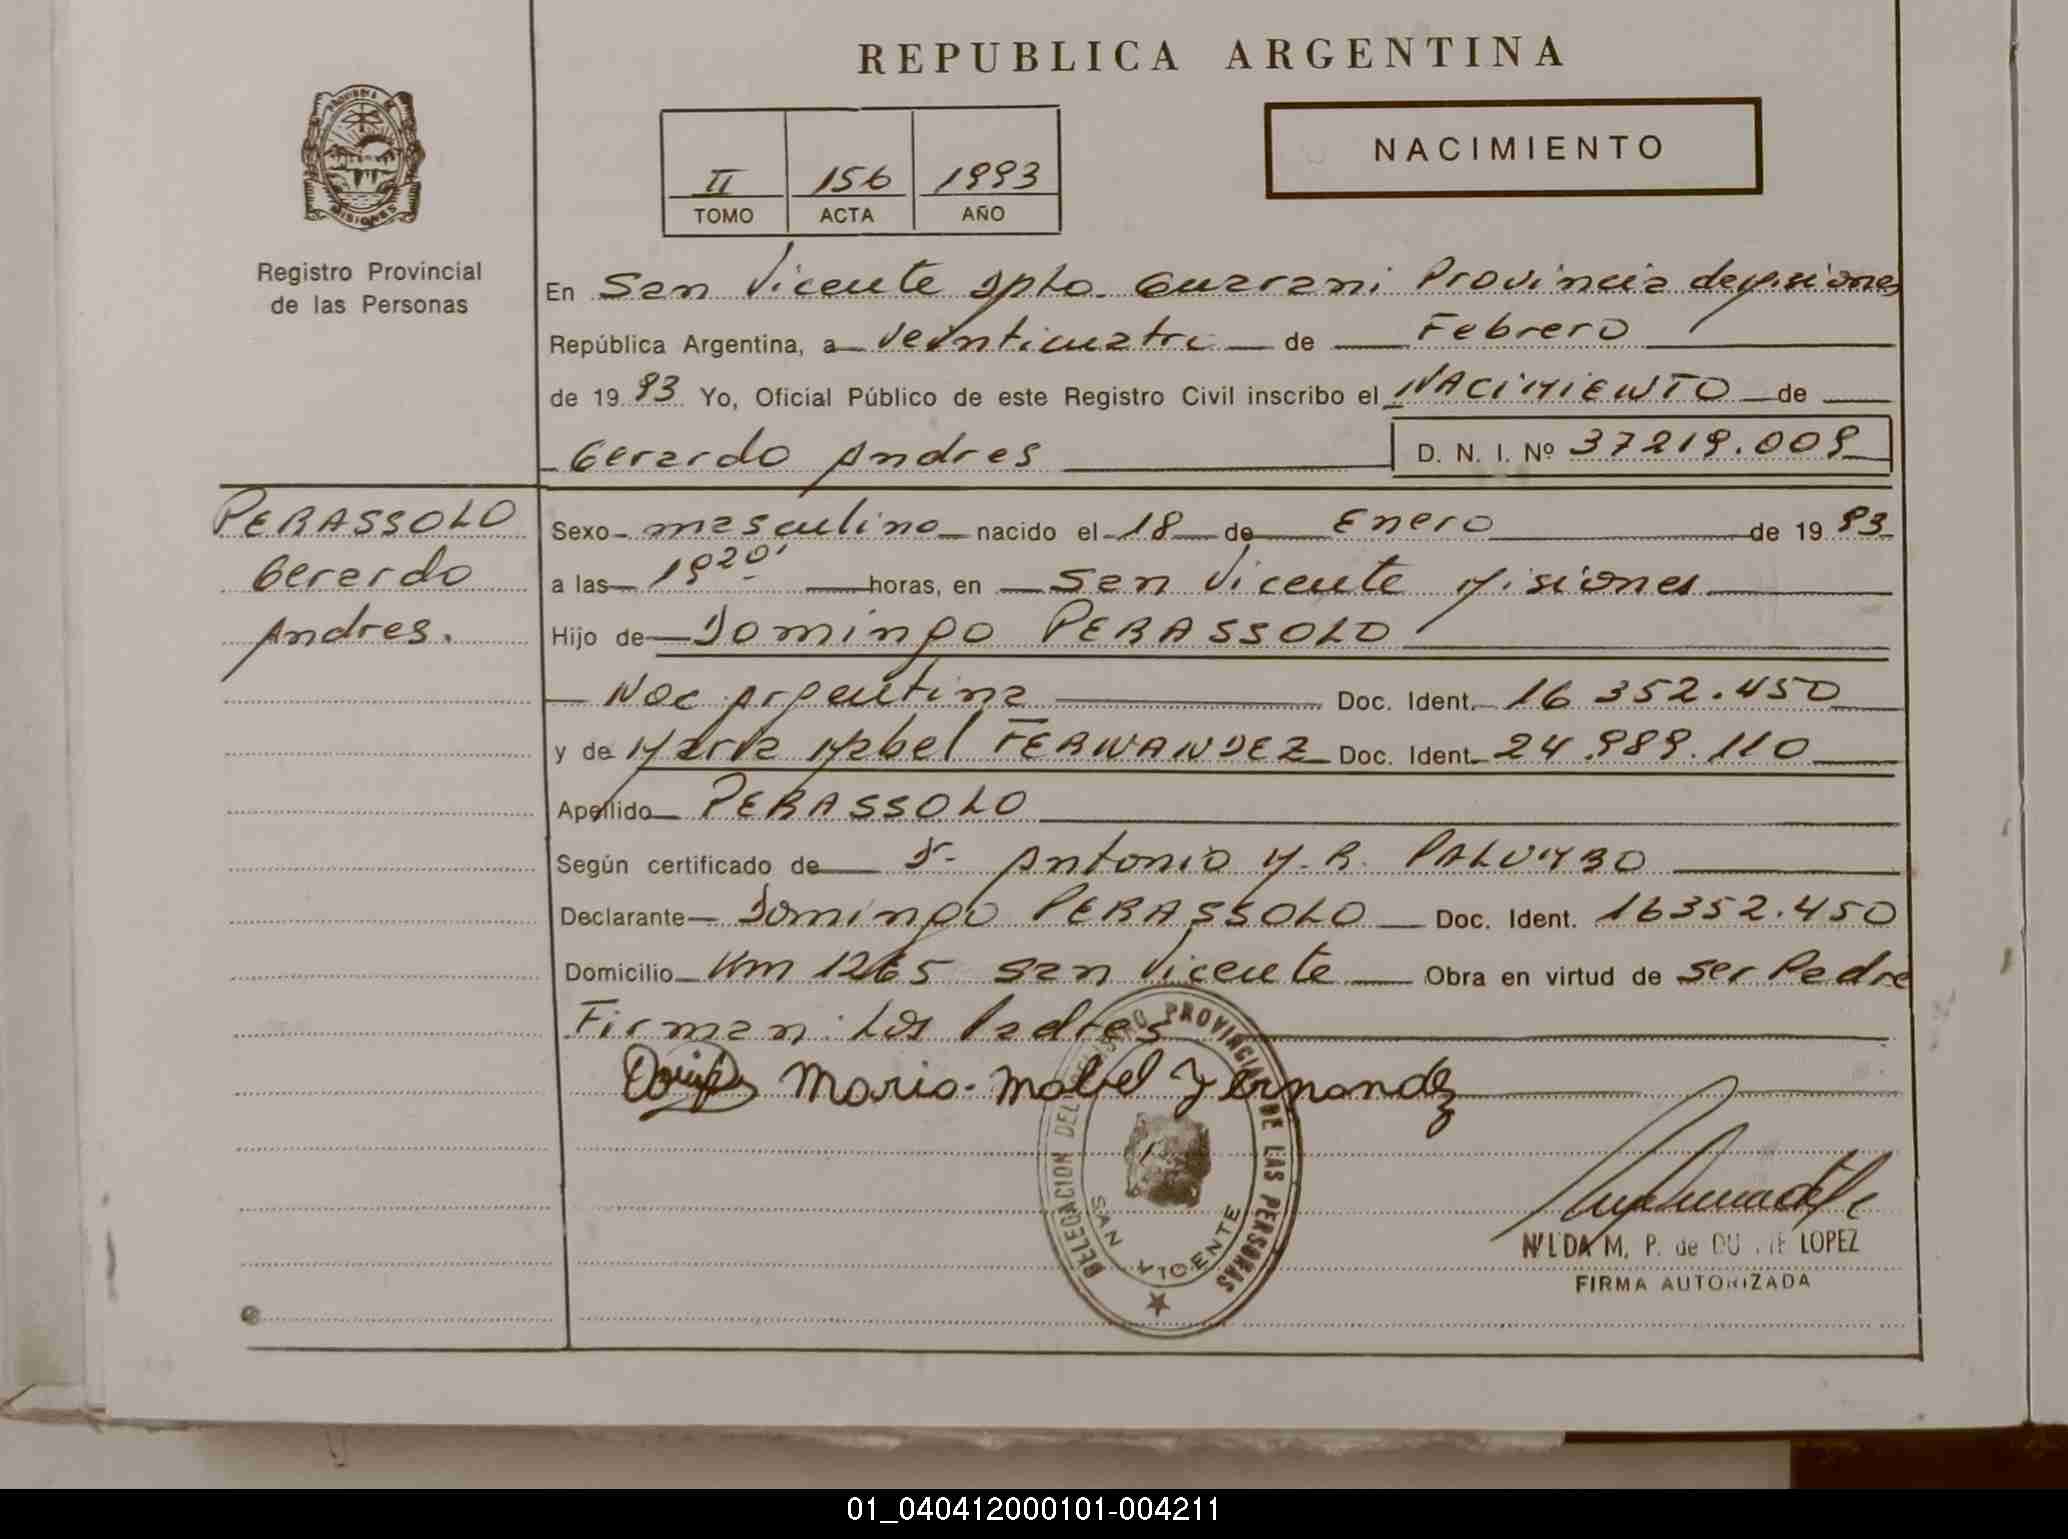 REPUBLICA ARGENTINA
PROVINCIA DE
MISIONES
NACIMIENTO
II 156 1993
TOMO ACTA AÑO
Registro Provincial
de las Personas
En San Vicente Dpto. Guarani Provincia de Misiones
República Argentina, a veinticuatro de Febrero
de 19 93 Yo, Oficial Público de este Registro Civil inscribo el NACIMIENTO de
Gerardo Andres D. N. I. Nº 37219.009
PERASSOLO
Gerardo
Andres.
Sexo masculino nacido el 18 de Enero de 19 93
a las 19 20' horas, en San Vicente Misiones
Hijo de Domingo PERASSOLO
Nac Argentina Doc. Ident. 16 352.450
y de Maria Mabel FERNANDEZ Doc. Ident. 24.989.110
Apellido PERASSOLO
Según certificado de Dr. Antonio M. R. PALUMBO
Declarante Domingo PERASSOLO Doc. Ident. 16352.450
Domicilio Km 1265 San Vicente Obra en virtud de ser Padre
Firman: Los Padres
Maria-Mabel Fernandez
DELEGACION DEL REGISTRO PROVINCIAL DE LAS PERSONAS
SAN VICENTE
M. P. de LOPEZ
FIRMA AUTORIZADA
01_040412000101-004211